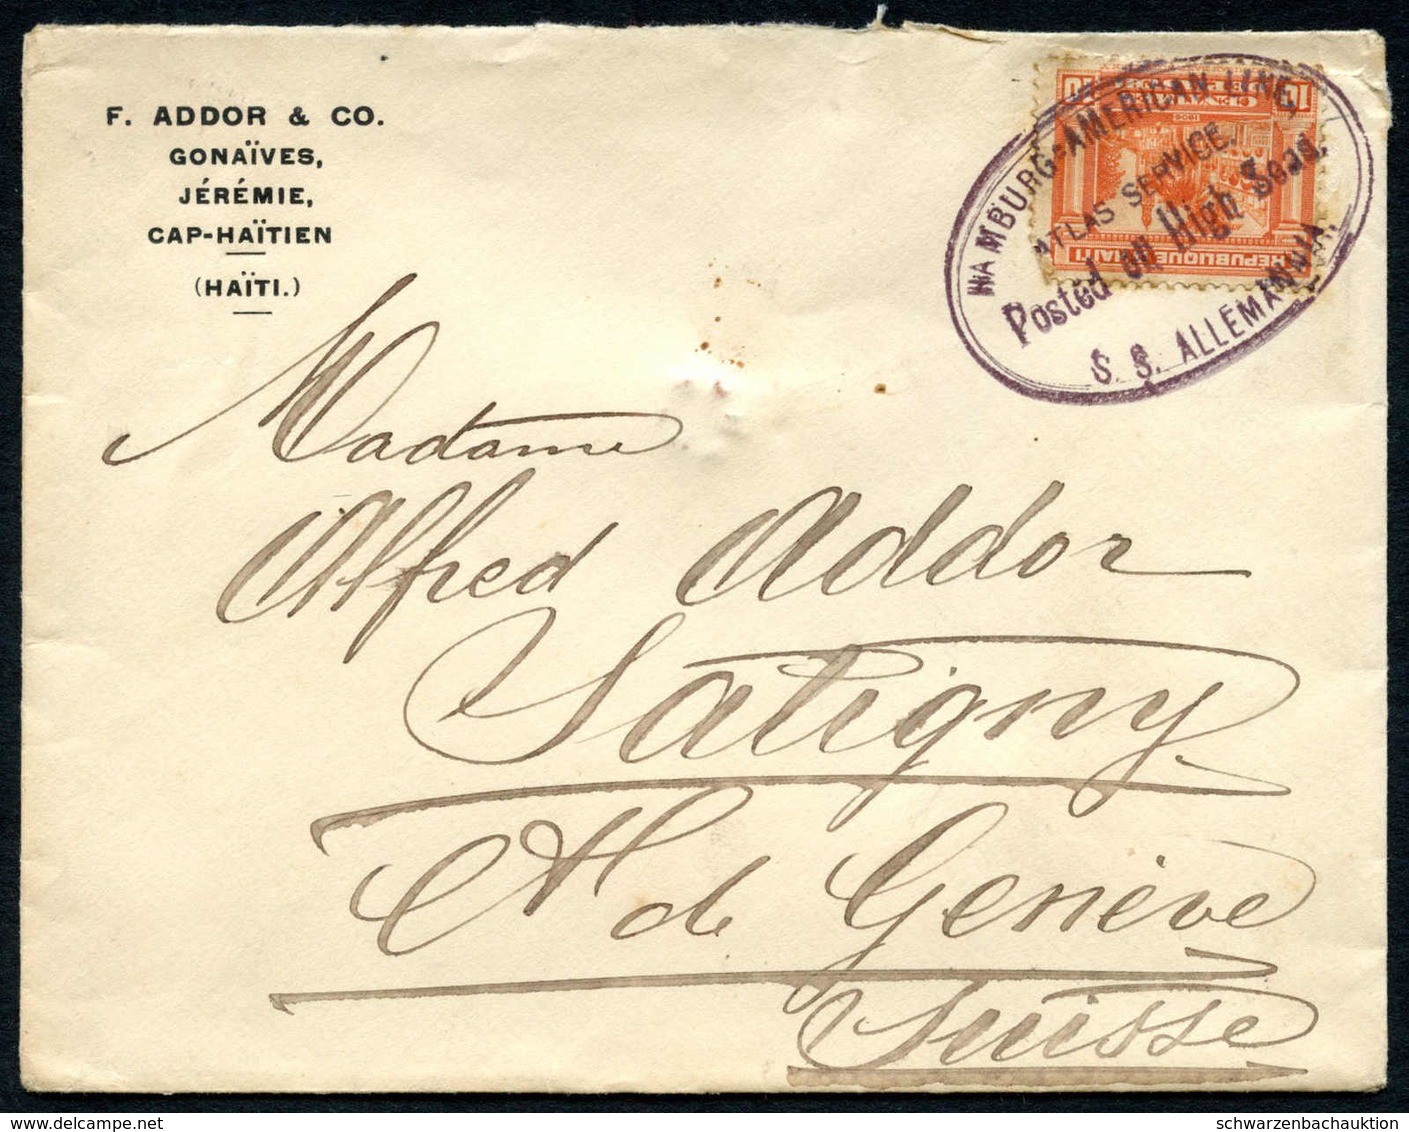 F. ADDOR & CO.
GONAÏVES,
JÉRÉMIE,
CAP-HAÏTIEN
(HAÏTI.)
HAMBURG-AMERICAN LINE,
ATLAS SERVICE.
Posted on High Seas.
S. S. ALLEMANNIA.
10 10
1906
REPUBLIQUE HAITI
Madame
Alfred Addor
Satigny
Ct de Genève
Suisse
www.delcampe.net
schwarzenbachauktion